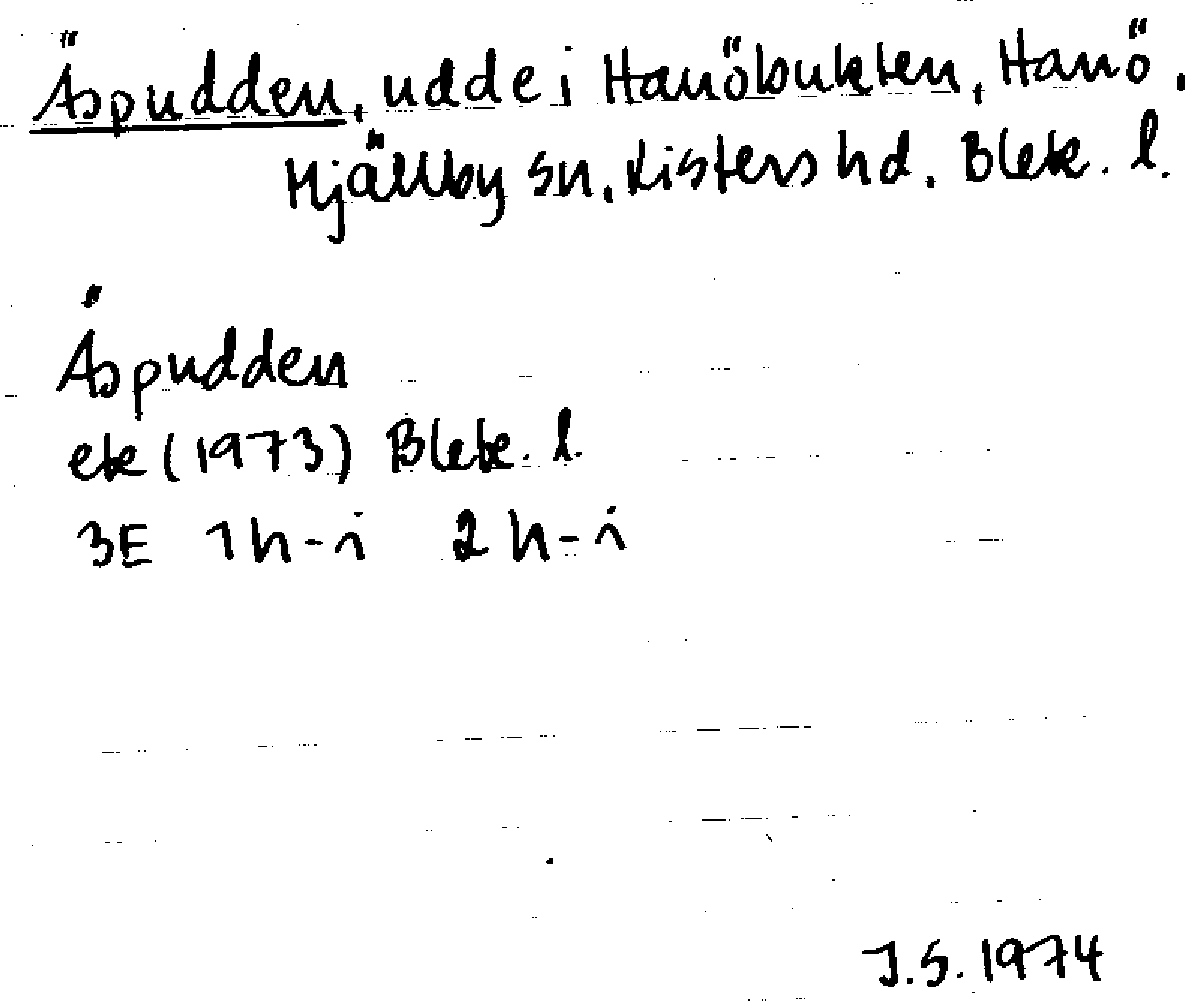 Äspudden, udde i Hanöbukten, Hanö,
Mjällby sn, Listers hd. Blek. l.
Äspudden
ek (1973) Blek. l.
3E 1h-i 2h-i
J.S. 1974